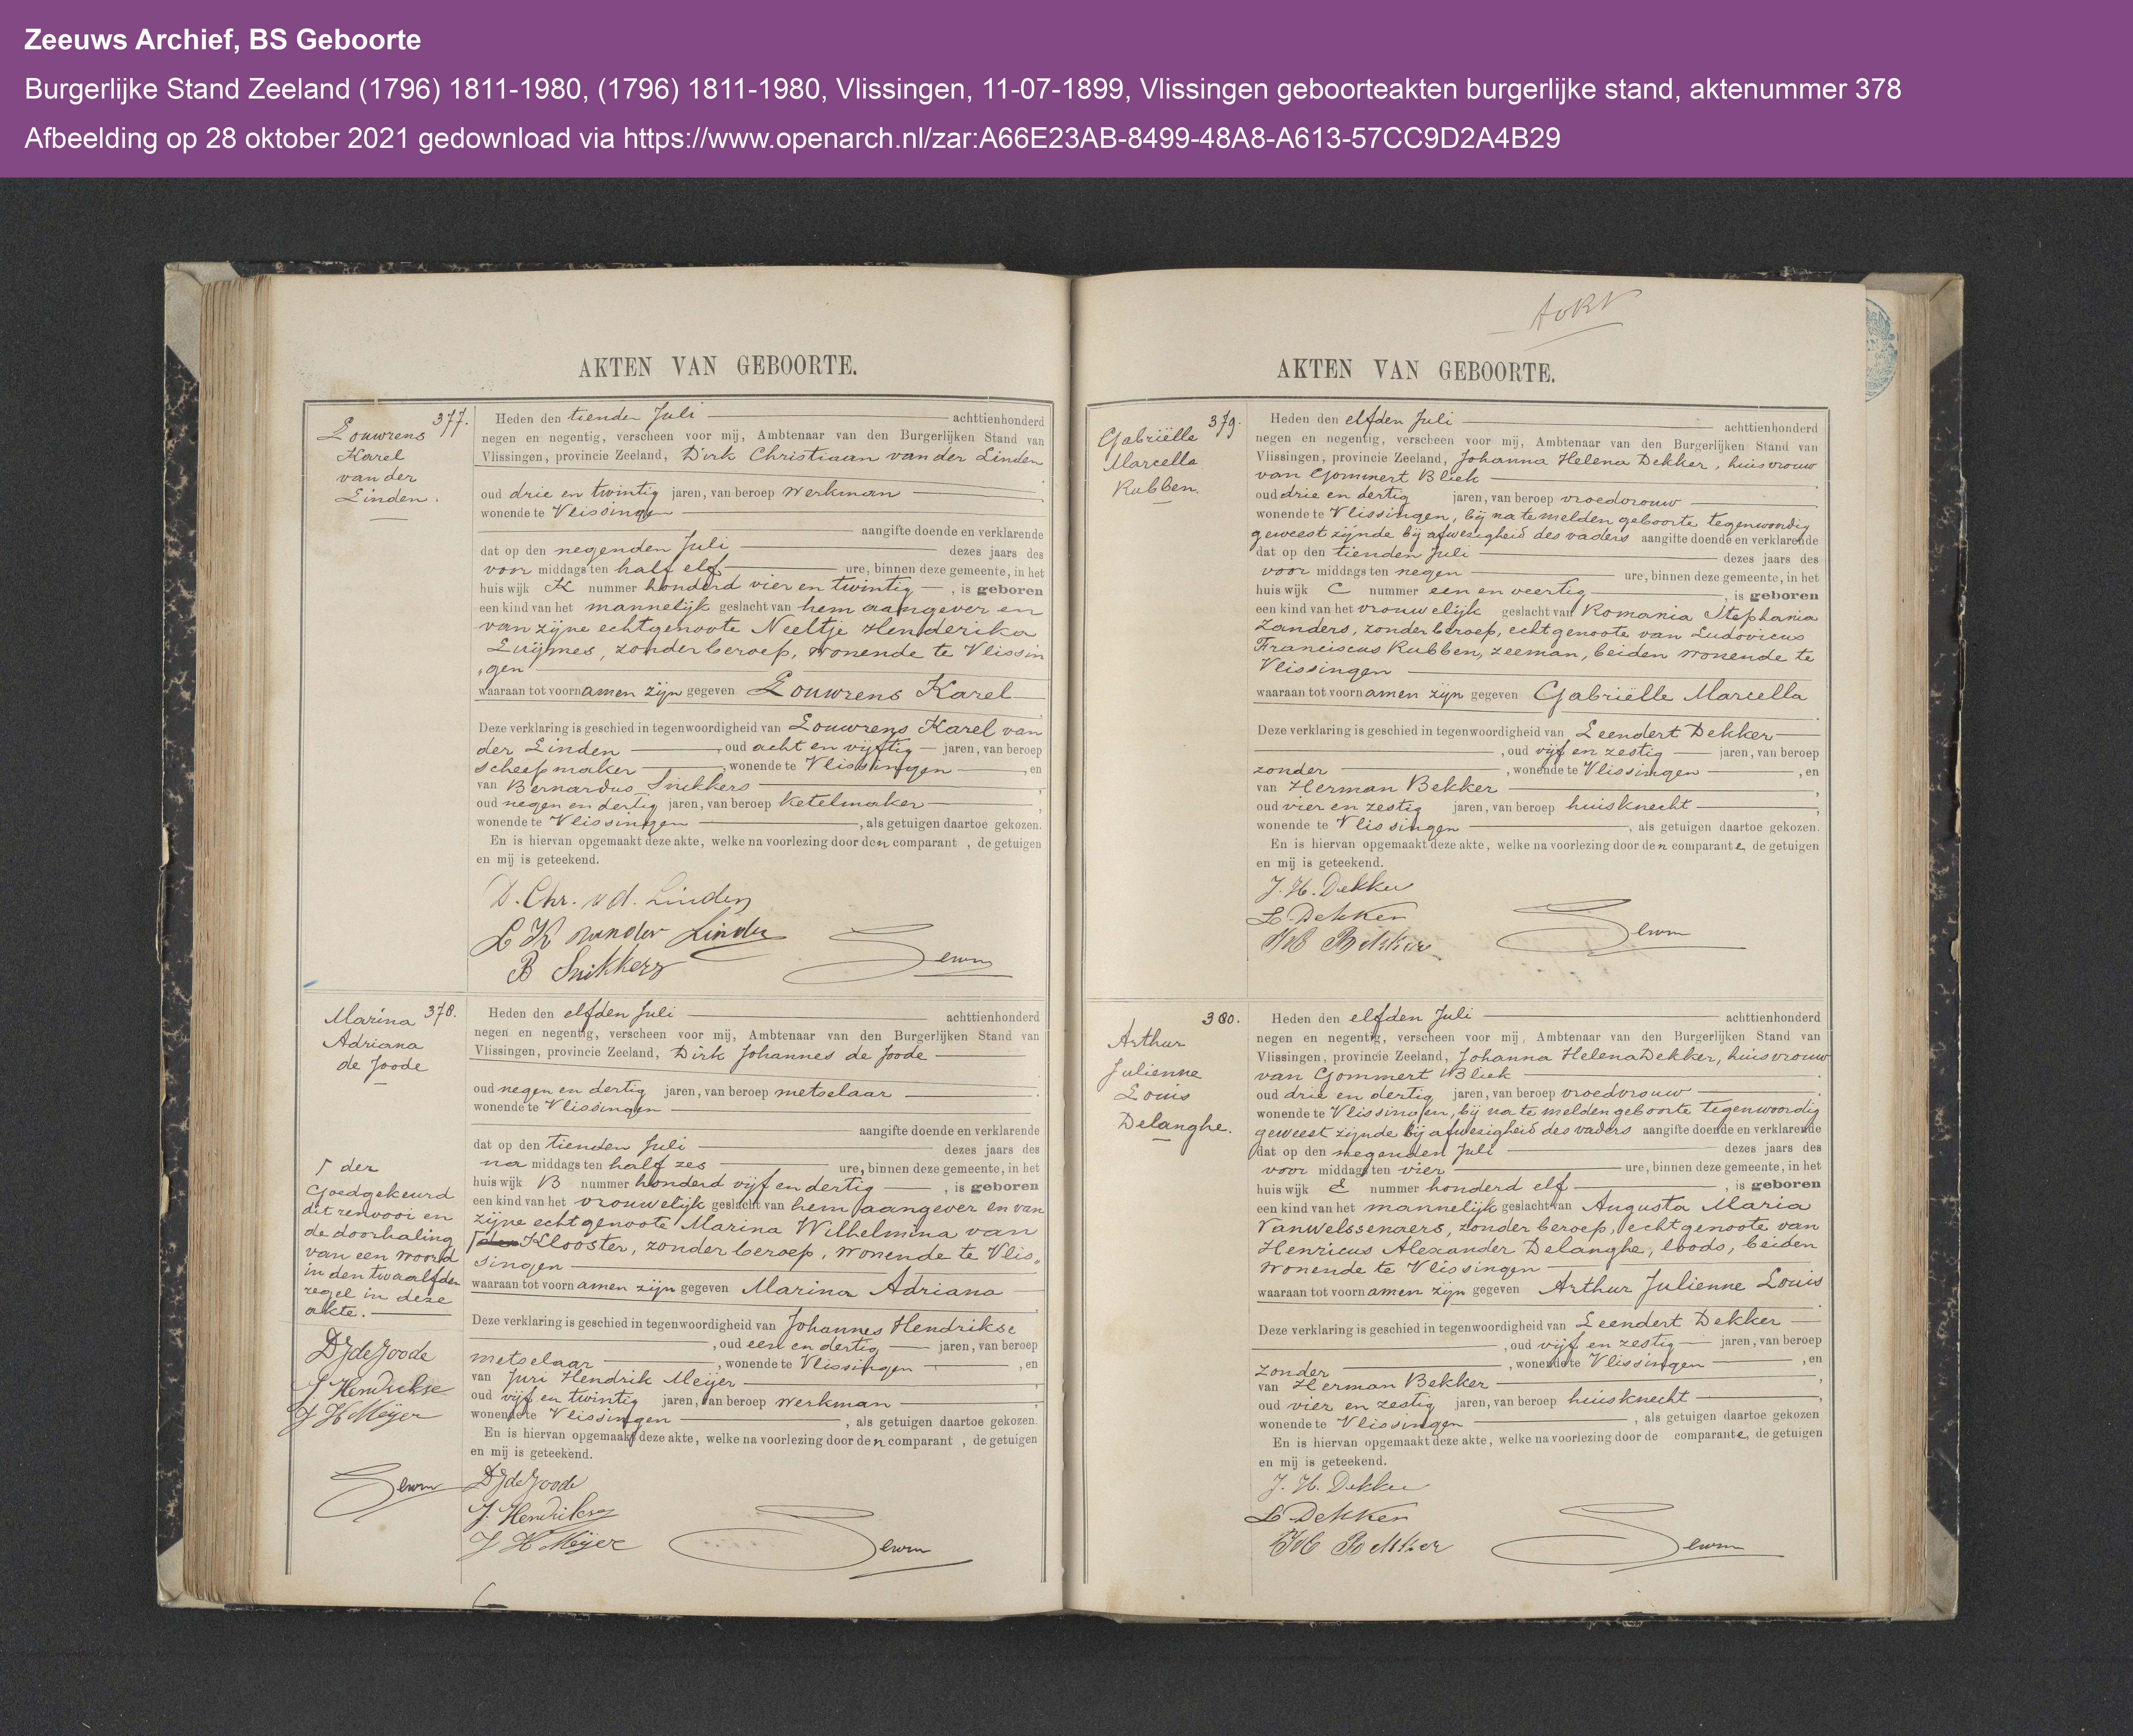 Zeeuws Archief, BS Geboorte
Burgerlijke Stand Zeeland (1796) 1811-1980, (1796) 1811-1980, Vlissingen, 11-07-1899, Vlissingen geboorteakten burgerlijke stand, aktenummer 378
Afbeelding op 28 oktober 2021 gedownload via https://www.openarch.nl/zar:A66E23AB-8499-48A8-A613-57CC9D2A4B29
AKTEN VAN GEBOORTE.
377.
Louwrens
Karel
van der
Linden.
Heden den tienden Juli achttienhonderd
negen en negentig, verscheen voor mij, Ambtenaar van den Burgerlijken Stand van
Vlissingen, provincie Zeeland, Dirk Christiaan van der Linden
oud drie en twintig jaren, van beroep werkman
wonende te Vlissingen
aangifte doende en verklarende
dat op den negenden Juli dezes jaars des
voor middags ten half elf ure, binnen deze gemeente, in het
huis wijk K nummer honderd vier en twintig, is geboren
een kind van het mannelijk geslacht van hem aangever en
van zijne echtgenoote Neeltje Henderika
Luijmes, zonder beroep, wonende te Vlissin
„gen
waaraan tot voornamen zijn gegeven Louwrens Karel
Deze verklaring is geschied in tegenwoordigheid van Louwrens Karel van
der Linden, oud acht en vijftig jaren, van beroep
scheepmaker, wonende te Vlissingen, en
van Bernardus Snikkers
oud negen en dertig jaren, van beroep ketelmaker,
wonende te Vlissingen, als getuigen daartoe gekozen.
En is hiervan opgemaakt deze akte, welke na voorlezing door den comparant, de getuigen
en mij is geteekend.
D. Chr. v d. Linden
L K van der Linden
B Snikkers
378.
Marina
Adriana
de Joode
Heden den elfden Juli achttienhonderd
negen en negentig, verscheen voor mij, Ambtenaar van den Burgerlijken Stand van
Vlissingen, provincie Zeeland, Dirk Johannes de Joode
oud negen en dertig jaren, van beroep metselaar
wonende te Vlissingen
aangifte doende en verklarende
dat op den tienden Juli dezes jaars des
na middags ten half zes ure, binnen deze gemeente, in het
huis wijk B nummer honderd vijf en dertig, is geboren
een kind van het vrouwelijk geslacht van hem aangever en van
zijne echtgenoote Marina Wilhelmina van
Klooster, zonder beroep, wonende te Vlis„
singen
waaraan tot voornamen zijn gegeven Marina Adriana
Deze verklaring is geschied in tegenwoordigheid van Johannes Hendrikse
, oud een en dertig jaren, van beroep
metselaar, wonende te Vlissingen, en
van Juri Hendrik Meijer
oud vijf en twintig jaren, van beroep werkman
wonende te Vlissingen, als getuigen daartoe gekozen.
En is hiervan opgemaakt deze akte, welke na voorlezing door den comparant, de getuigen
en mij is geteekend.
DJ de Joode
J. Hendrikse
J H Meijer
der
Goedgekeurd
dit renvooi en
de doorhaling
van een woord
in den twaalfden
regel in deze
akte.
DJ de Joode
J. Hendrikse
J H Meijer
AKTEN VAN GEBOORTE.
379.
Gabriëlle
Marcella
Rubben.
Heden den elfden Juli achttienhonderd
negen en negentig, verscheen voor mij, Ambtenaar van den Burgerlijken Stand van
Vlissingen, provincie Zeeland, Johanna Helena Dekker, huisvrouw
van Gommert Bliek
oud drie en dertig jaren, van beroep vroedvrouw
wonende te Vlissingen, bij na te melden geboorte tegenwoordig
geweest zijnde bij afwezigheid des vaders aangifte doende en verklarende
dat op den tienden Juli dezes jaars des
voor middags ten negen ure, binnen deze gemeente, in het
huis wijk C nummer een en veertig, is geboren
een kind van het vrouwelijk geslacht van Romania Stephania
Zanders, zonder beroep, echtgenoote van Ludovicus
Franciscus Rubben, zeeman, beiden wonende te
Vlissingen
waaraan tot voornamen zijn gegeven Gabriëlle Marcella
Deze verklaring is geschied in tegenwoordigheid van Leendert Dekker
, oud vijf en zestig jaren, van beroep
zonder, wonende te Vlissingen, en
van Herman Bekker
oud vier en zestig jaren, van beroep huisknecht
wonende te Vlissingen, als getuigen daartoe gekozen.
En is hiervan opgemaakt deze akte, welke na voorlezing door den comparante, de getuigen
en mij is geteekend.
J. H. Dekker
L. Dekker
H Bekker
380.
Arthur
Julienne
Louis
Delanghe.
Heden den elfden Juli achttienhonderd
negen en negentig, verscheen voor mij, Ambtenaar van den Burgerlijken Stand van
Vlissingen, provincie Zeeland, Johanna Helena Dekker, huisvrouw
van Gommert Bliek
oud drie en dertig jaren, van beroep vroedvrouw
wonende te Vlissingen, bij na te melden geboorte tegenwoordig
geweest zijnde bij afwezigheid des vaders aangifte doende en verklarende
dat op den negenden Juli dezes jaars des
voor middags ten vier ure, binnen deze gemeente, in het
huis wijk E nummer honderd elf, is geboren
een kind van het mannelijk geslacht van Augusta Maria
Vanwelssenaers, zonder beroep, echtgenoote van
Henricus Alexander Delanghe, loods, beiden
wonende te Vlissingen
waaraan tot voornamen zijn gegeven Arthur Julienne Louis
Deze verklaring is geschied in tegenwoordigheid van Leendert Dekker
, oud vijf en zestig jaren, van beroep
zonder, wonende te Vlissingen, en
van Herman Bekker
oud vier en zestig jaren, van beroep huisknecht
wonende te Vlissingen, als getuigen daartoe gekozen
En is hiervan opgemaakt deze akte, welke na voorlezing door de comparante, de getuigen
en mij is geteekend.
J. H. Dekker
L Dekker
H Bekker